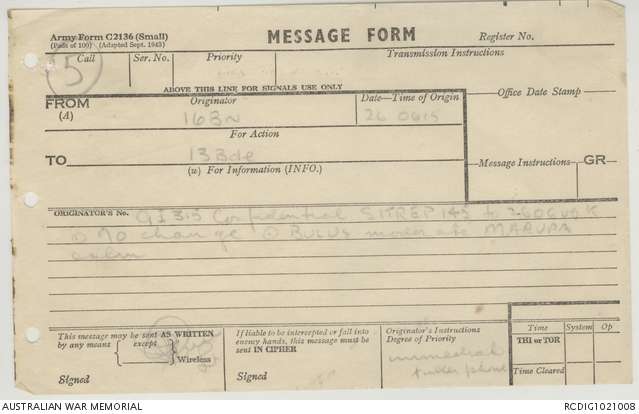 Army Form C2136 (Small)
(Pads of 100) (Adapted Sept. 1943)
MESSAGE FORM
Register No.
5
Call
Ser. No.
Priority
Transmission Instructions
ABOVE THIS LINE FOR SIGNALS USE ONLY
FROM
(A)
Originator
16 Bn
Date—Time of Origin
26 0615
Office Date Stamp—
For Action
TO
13 Bde
(w) For Information (INFO.)
Message Instructions
GR
ORIGINATOR'S No.
GI 315 Confidential SITREP 143 to 260600K
No change BULUS moderate MARUPA
calm
This message may be sent AS WRITTEN
by any means except
Wireless
Signed
If liable to be intercepted or fall into
enemy hands, this message must be
sent IN CIPHER
Signed
Originator's Instructions
Degree of Priority
immediate
fuller phone
Time
System
Op
THI or TOR
Time Cleared
AUSTRALIAN WAR MEMORIAL
RCDIG1021008